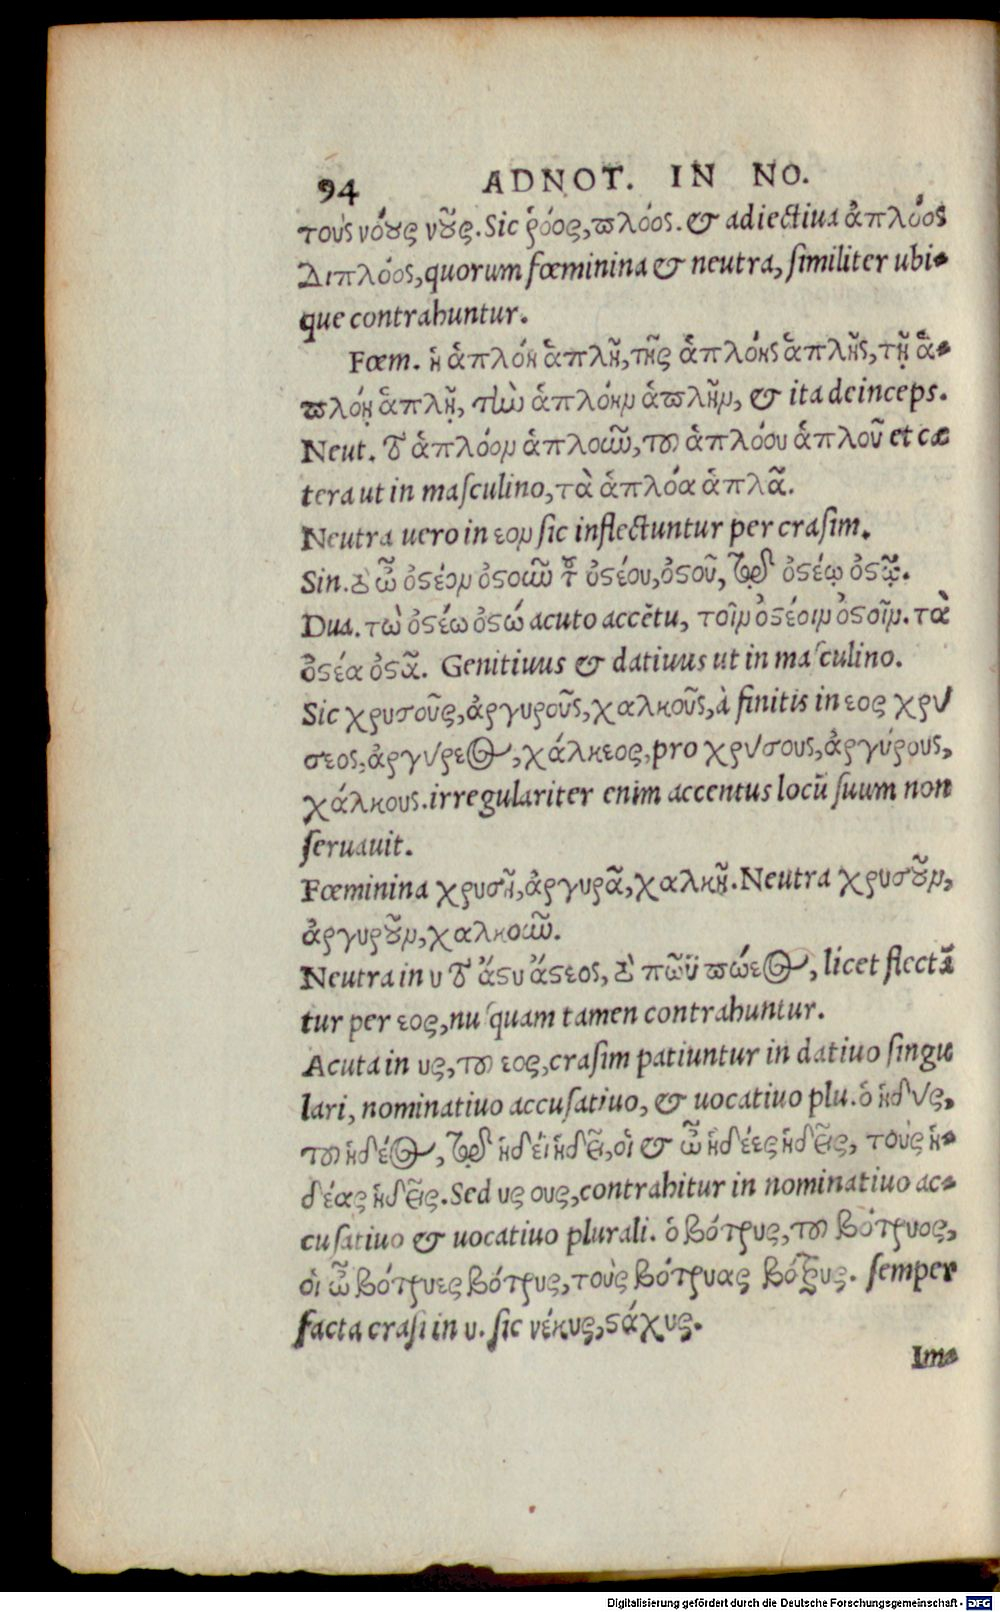 94 ADNOT. IN NO.
τοὺς νόους νοῦς. Sic ῥόος, πλόος. & adiectiua ἁπλόος
διπλόος, quorum fœminina & neutra, similiter ubi-
que contrahuntur.
Fœm. ἡ ἁπλόη ἁπλῆ, τῆς ἁπλόης ἁπλῆς, τῇ ἁ-
πλόῃ ἁπλῇ, τὴν ἁπλόην ἁπλῆν, & ita deinceps.
Neut. τὸ ἁπλόον ἁπλοῦν, τοῦ ἁπλόου ἁπλοῦ et cæ
tera ut in masculino, τὰ ἁπλόα ἁπλᾶ.
Neutra uero in εον sic inflectuntur per crasim.
Sin. τὸ ὦ ὀστέον ὀστοῦν τοῦ ὀστέου, ὀστοῦ, τῷ ὀστέῳ ὀστῷ.
Dua. τὼ ὀστέω ὀστώ acuto accẽtu, τοῖν ὀστέοιν ὀστοῖν. τὰ
ὀστέα ὀστᾶ. Genitiuus & datiuus ut in masculino.
Sic χρυσοῦς, ἀργυροῦς, χαλκοῦς, à finitis in εος χρύ
σεος, ἀργύρεος, χάλκεος, pro χρύσους, ἀργύρους,
χάλκους. irregulariter enim accentus locũ suum non
seruauit.
Fœminina χρυσῆ, ἀργυρᾶ, χαλκῆ. Neutra χρυσοῦν,
ἀργυροῦν, χαλκοῦν.
Neutra in υ τὸ ἄστυ ἄστεος, τὸ πῶϋ πώεος, licet flectã
tur per εος, nusquam tamen contrahuntur.
Acuta in υς, τοῦ εος, crasim patiuntur in datiuo singu
lari, nominatiuo accusatiuo, & uocatiuo plu. ὁ ἡδύς,
τοῦ ἡδέος, τῷ ἡδέϊ ἡδεῖ, οἱ & ὦ ἡδέες ἡδεῖς, τοὺς ἡ-
δέας ἡδεῖς. Sed υς ους, contrahitur in nominatiuo ac-
cusatiuo & uocatiuo plurali. ὁ βότρυς, τοῦ βότρυος,
οἱ ὦ βότρυες βότρυς, τοὺς βότρυας βότρυς. semper
facta crasi in υ. sic νέκυς, στάχυς.
Im-
Digitalisierung gefördert durch die Deutsche Forschungsgemeinschaft - DFG